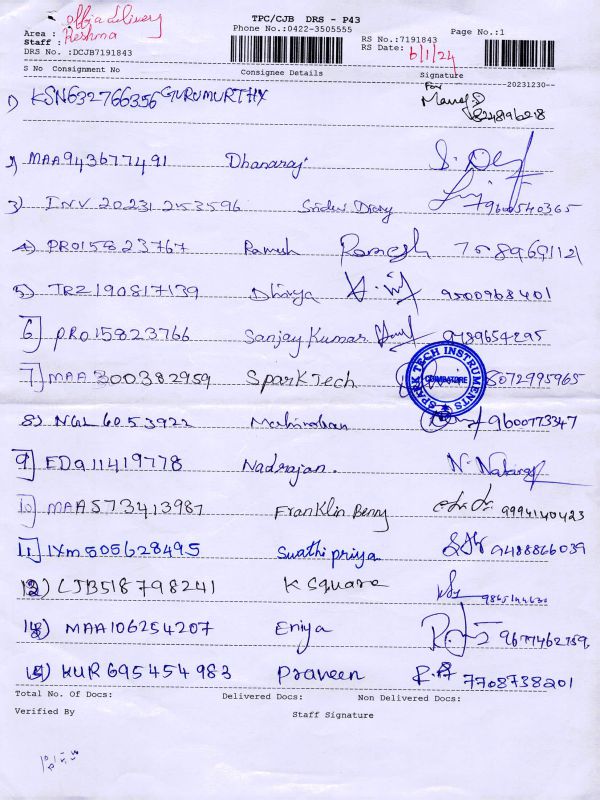 TPC/CJB DRS - P43
Phone No.:0422-3505555
Page No.:1
Office delivery
Area :
Staff : Reshma
RS No.:7191843
RS Date: 6/1/24
DRS No. :DCJB7191843
S No Consignment No Consignee Details Signature
20231230--
1) KSN632766356 GURUMURTHY For Manoj.D 8248996218
2) MAA943677491 Dhanaraj
3) INV 20231 2153596 9600540365
4) PRO15823767 Ramesh Ramesh
5) TRZ190817139 Dhivya 9500968401
6) PRO15823766 Sanjay Kumar 9489654295
7) MAA300382959 SparkTech 8072995965
SPARK TECH INSTRUMENTS
COIMBATORE
8) NGL6053922 9600773347
9) EDQ11419778 Nadrajan.
10) MAA573413987 Franklin Benny 9994140423
11) IXM505628495 Swathipriya 9488866039
12) LJB518798241 K Square
14) MAA106254207 Eniya
15) KUR695454983 Praveen 7708738201
Total No. Of Docs: Delivered Docs: Non Delivered Docs:
Verified By Staff Signature